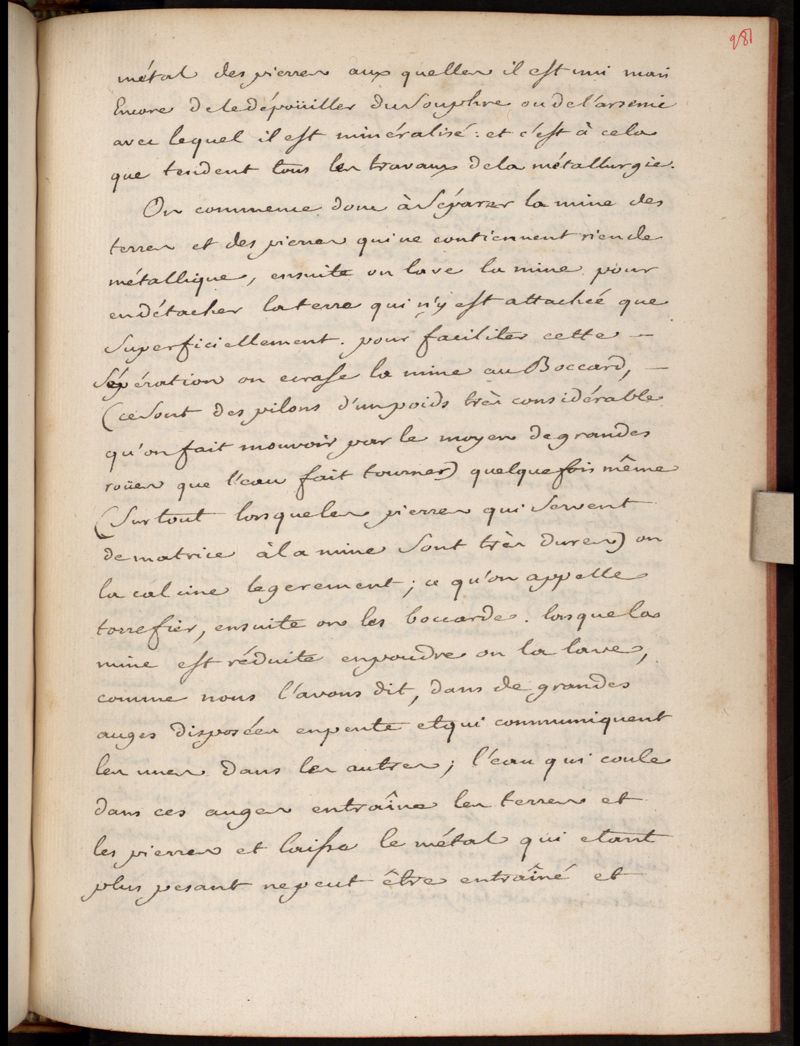 981
métal des pierres aux quelles il est uni mais
Encore de le dépoüiller du souphre ou de l'arsenic
avec lequel il est minéralisé : et c'est à cela
que tendent tous les travaux de la métallurgie.
On commence donc à séparer la mine des
terres et des pierres qui ne contiennent rien de
métallique, ensuite on lave la mine pour
en détacher la terre qui n'y est attachée que
superficiellement. pour faciliter cette —
séparation on ecrase la mine au Boccard, —
(ce sont des pilons d'un poids très considérable
qu'on fait mouvoir par le moyen de grandes
roües que l'eau fait tourner) quelque fois même
(sur tout lorsque les pierres qui servent
de matrice à la mine sont très dures) on
la calcine legerement ; ce qu'on appelle
torrefier, ensuite on les boccarde. lorsque la
mine est réduite en poudre on la lave,
comme nous l'avons dit, dans de grandes
auges disposées en pente et qui communiquent
les unes dans les autres ; l'eau qui coule
dans ces auges entraîne les terres et
les pierres et laisse le métal qui etant
plus pesant ne peut être entraîné et